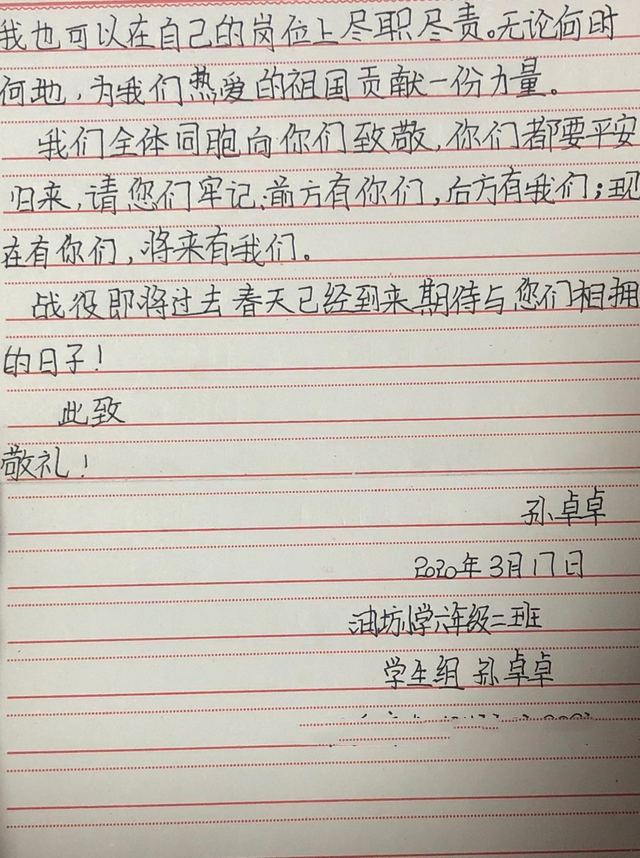 我也可以在自己的岗位上尽职尽责。无论何时
何地，为我们热爱的祖国贡献一份力量。
我们全体同胞向你们致敬，你们都要平安
归来，请您们牢记：前方有你们，后方有我们；现
在有你们，将来有我们。
战役即将过去春天已经到来期待与您们相拥
的日子！
此致
敬礼！
孙卓卓
2020年3月17日
油坊小学六年级二班
学生组 孙卓卓